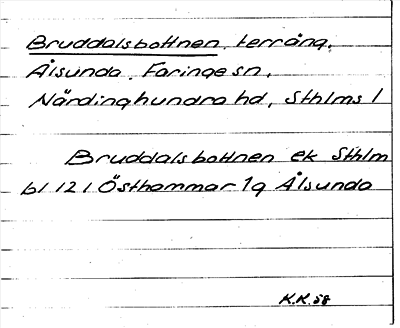 Bruddalsbottnen, terräng,
Ålsunda, Faringe sn,
Närdinghundra hd, Sthlms l
Bruddalsbottnen ek Sthlm
bl 121 Östhammar 1g Ålsunda
K.K. 58